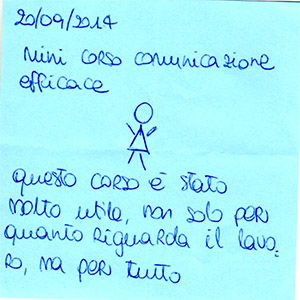 20/09/2014
mini corso comunicazione
efficace
questo corso è stato
molto utile, non solo per
quanto riguarda il lavo-
ro, ma per tutto